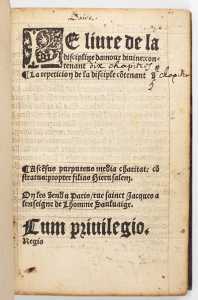 LE liure de la
discipline damour diuine: con
tenant dix chapitres
La repeticion de la disciple cōtenant
chapitre
Ascēsus purpureus media charitate cō
strauit: propter filias Hierusalem.
On les vend a Paris / rue sainct Jacques a
lenseigne de Lhomme Sauluaige.
Cum priuilegio.
Regis